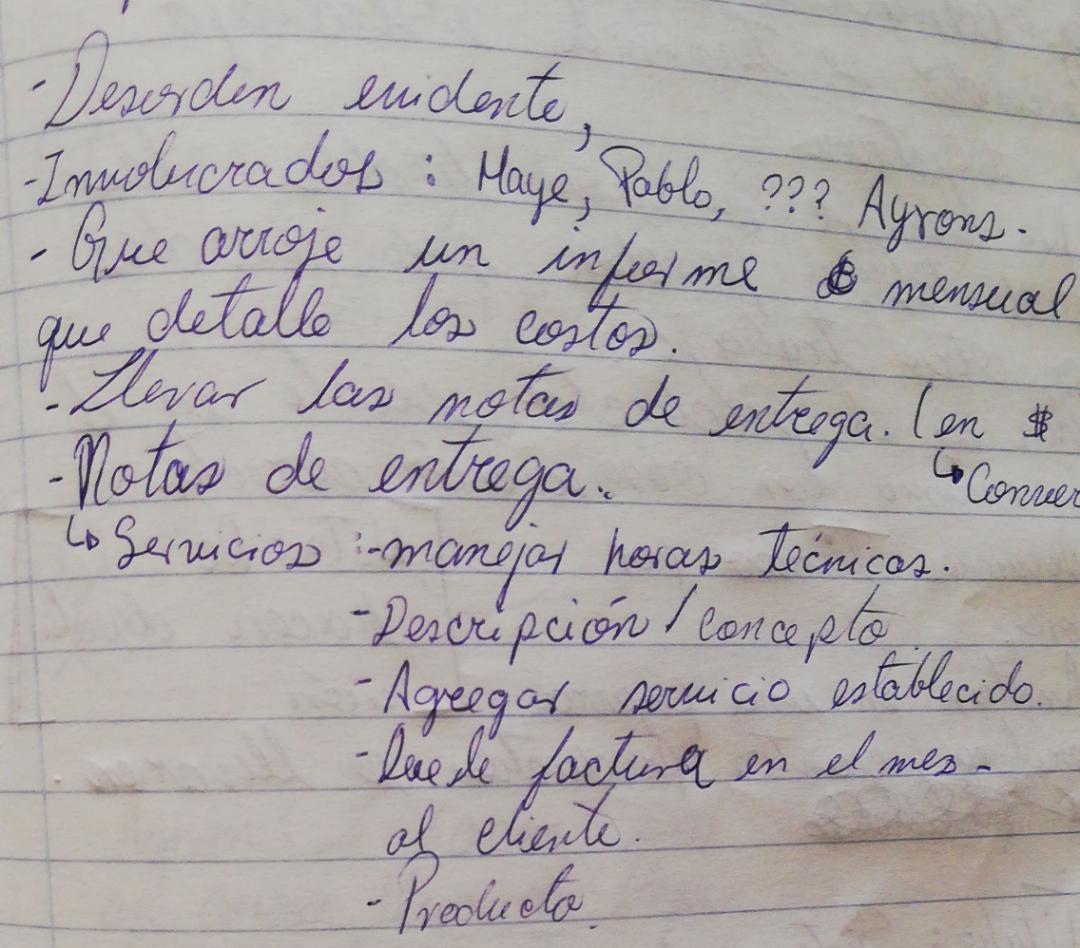 - Desorden evidente,
- Involucrados : Maye, Pablo, ??? Ayrons.
- Que arroje un informe mensual
que detalle los costos.
- Llevar las notas de entrega. (en $
↳ Conver
- Notas de entrega.
↳ Servicios : - manejar horas técnicas.
- Descripción / concepto
- Agregar servicio establecido.
- Que le factura en el mes -
al cliente.
- Producto.